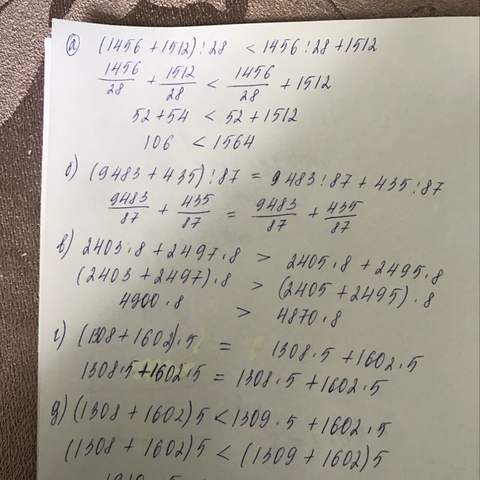 а) (1456 + 1512) : 28 < 1456 : 28 + 1512
1456/28 + 1512/28 < 1456/28 + 1512
52 + 54 < 52 + 1512
106 < 1564
б) (9483 + 435) : 87 = 9483 : 87 + 435 : 87
9483/87 + 435/87 = 9483/87 + 435/87
в) 2403 · 8 + 2497 · 8 > 2405 · 8 + 2495 · 8
(2403 + 2497) · 8 > (2405 + 2495) · 8
4900 · 8 > 4870 · 8
г) (1308 + 1602) · 5 = 1308 · 5 + 1602 · 5
1308 · 5 + 1602 · 5 = 1308 · 5 + 1602 · 5
д) (1308 + 1602) 5 < 1309 · 5 + 1602 · 5
(1308 + 1602) 5 < (1309 + 1602) 5